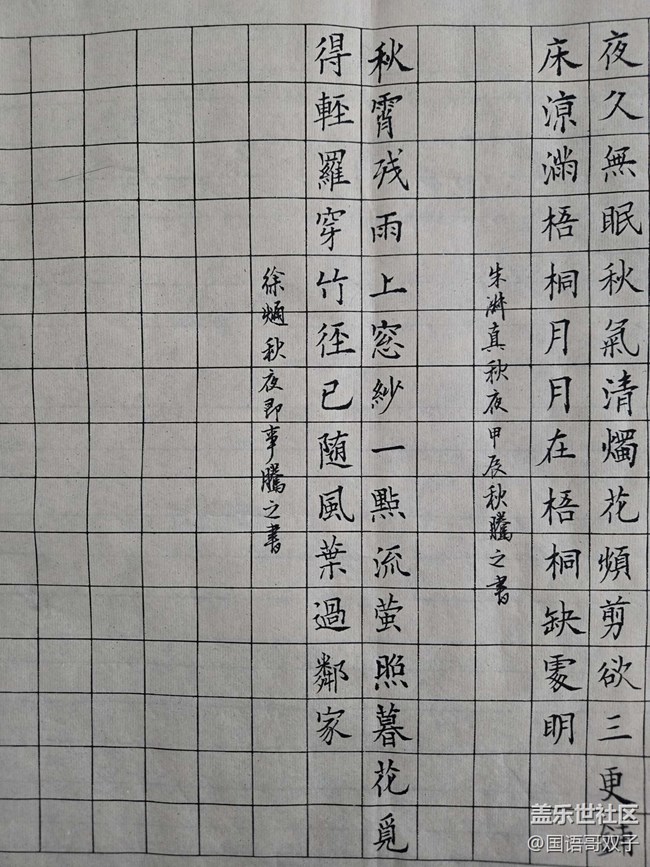 夜久無眠秋氣清燭花頻剪欲三更鋪
床涼滿梧桐月月在梧桐缺處明
朱淑真秋夜甲辰秋騰之書
秋霄残雨上窓紗一點流萤照暮花覓
得輕羅穿竹徑已随風葉過鄰家
徐熥秋夜即事騰之書
盖乐世社区
@国语哥双子